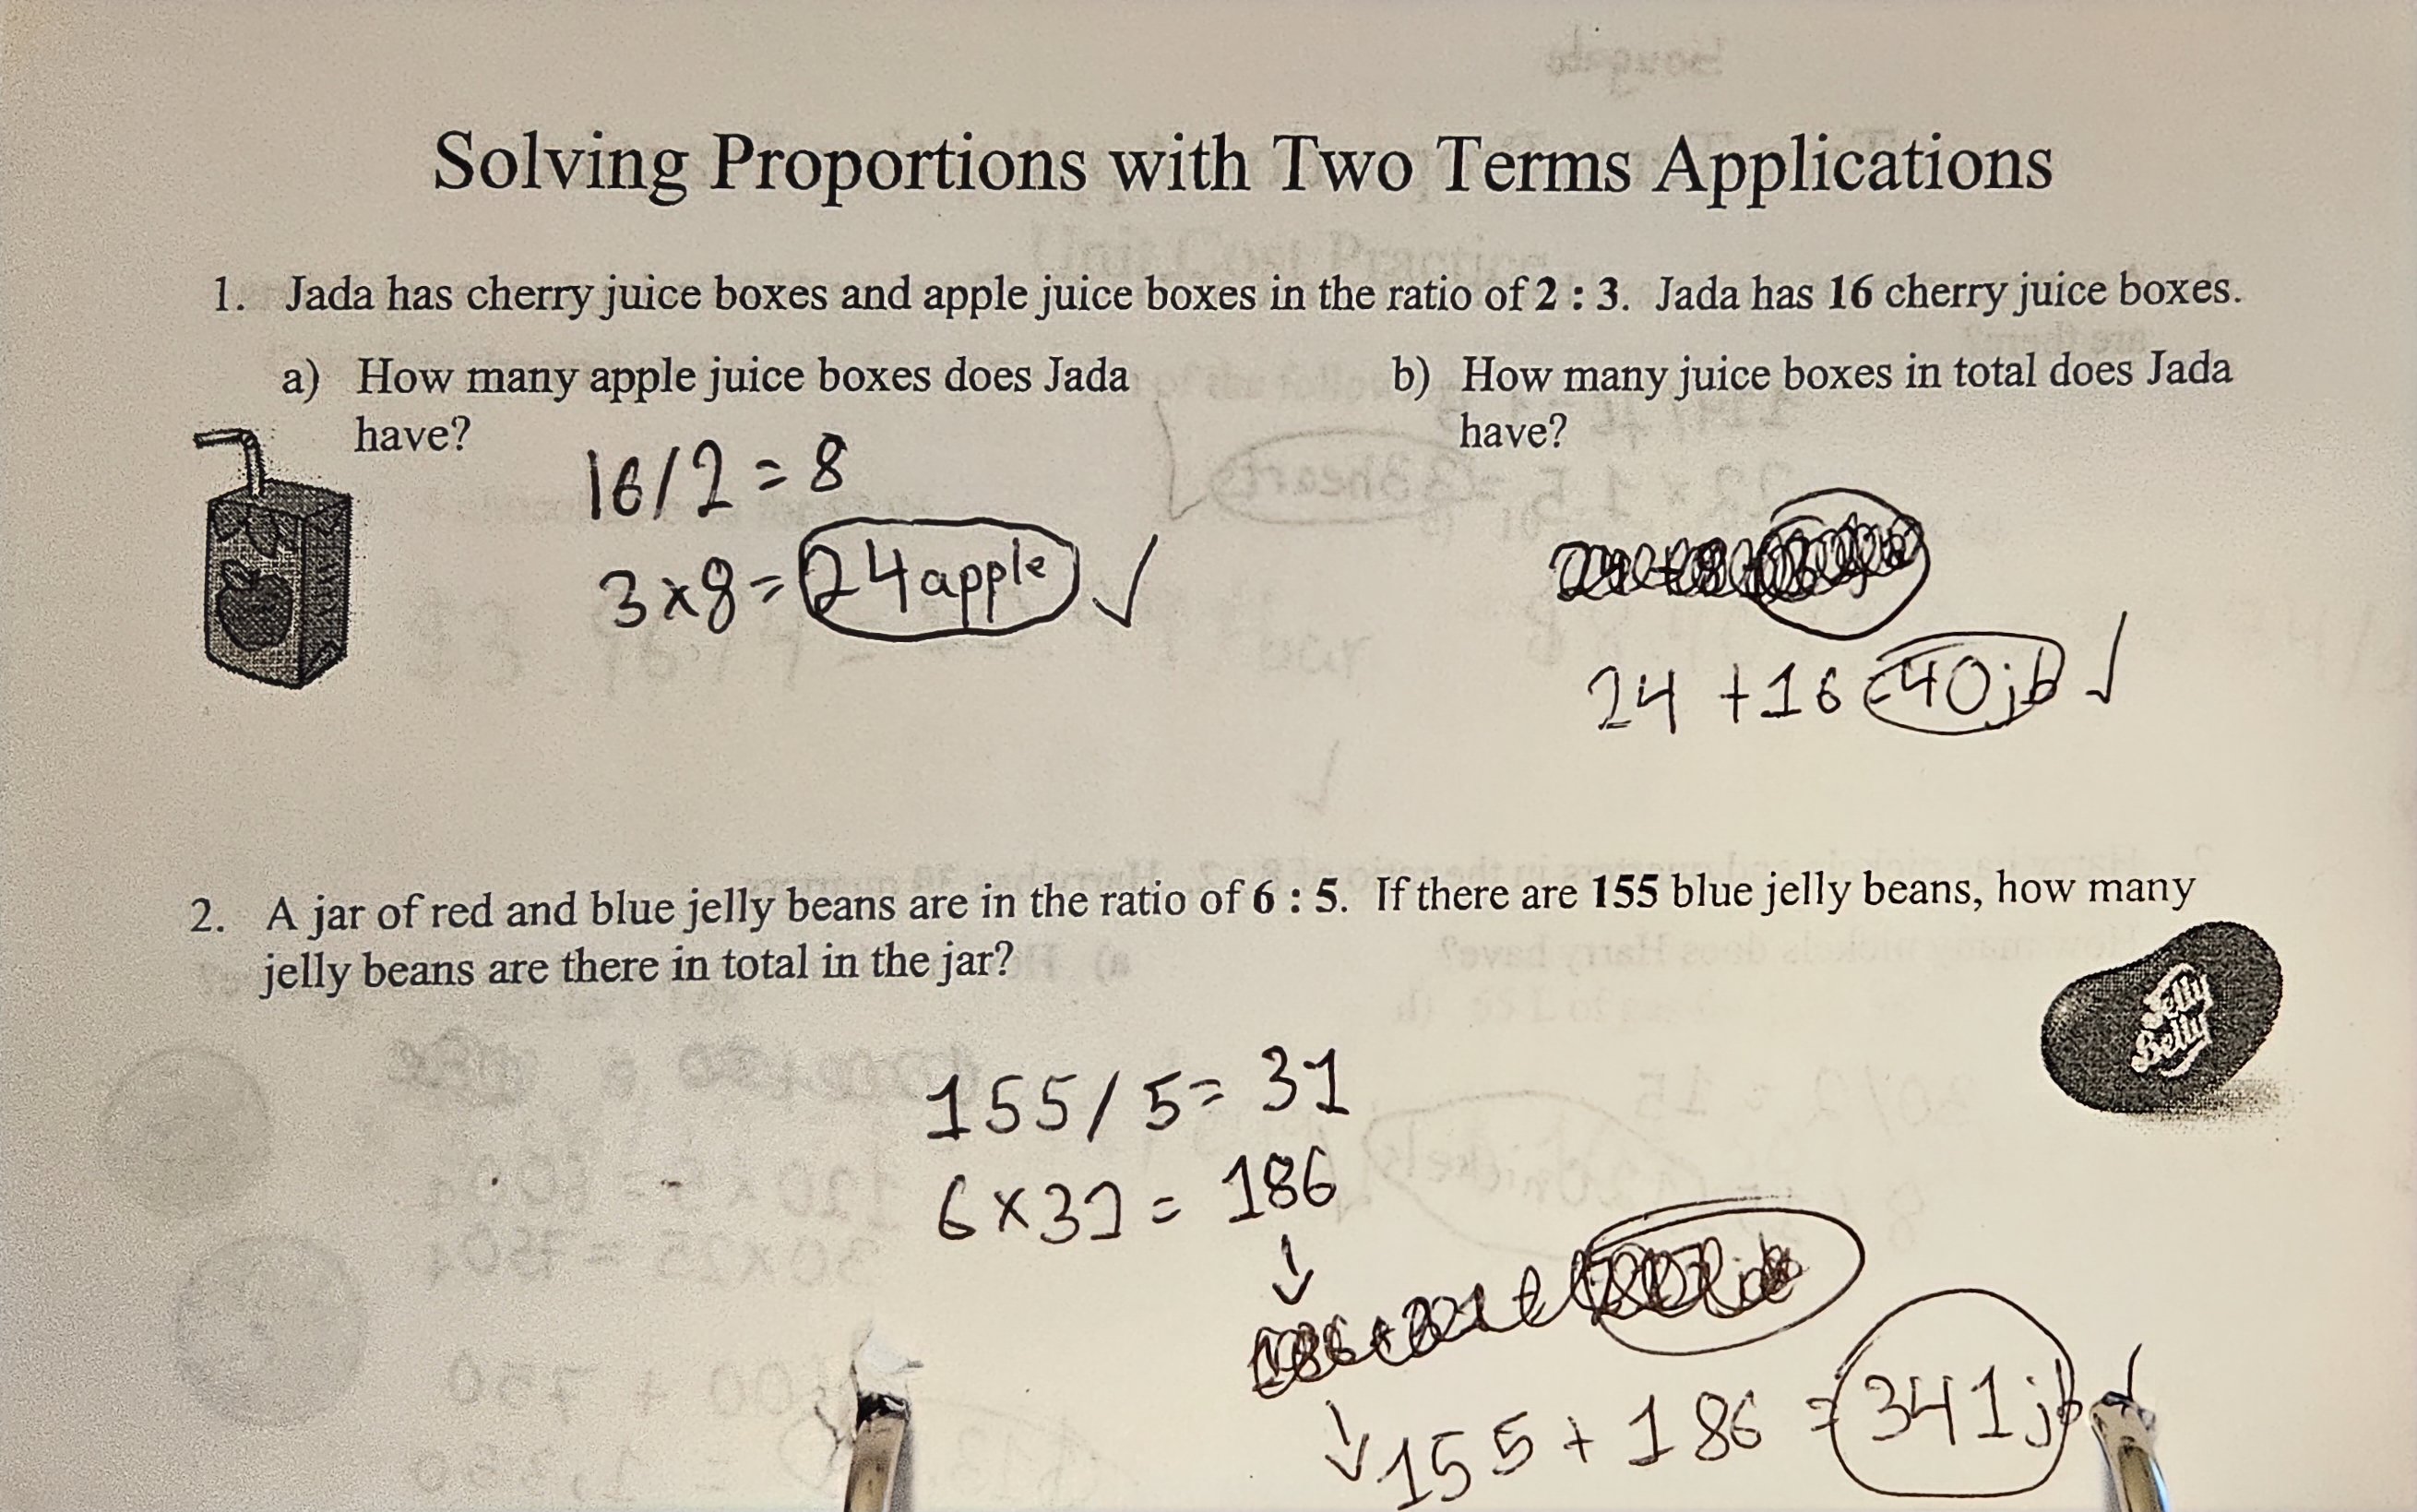 Solving Proportions with Two Terms Applications
1. Jada has cherry juice boxes and apple juice boxes in the ratio of 2 : 3. Jada has 16 cherry juice boxes.
a) How many apple juice boxes does Jada
have?
16/2 = 8
3x8= 24 apple ✓
b) How many juice boxes in total does Jada
have?
24 +16 =40jb ✓
2. A jar of red and blue jelly beans are in the ratio of 6 : 5. If there are 155 blue jelly beans, how many
jelly beans are there in total in the jar?
Jelly
Belly
155/5= 31
6x31 = 186
↓
↓ 155 + 186 = 341jb ✓